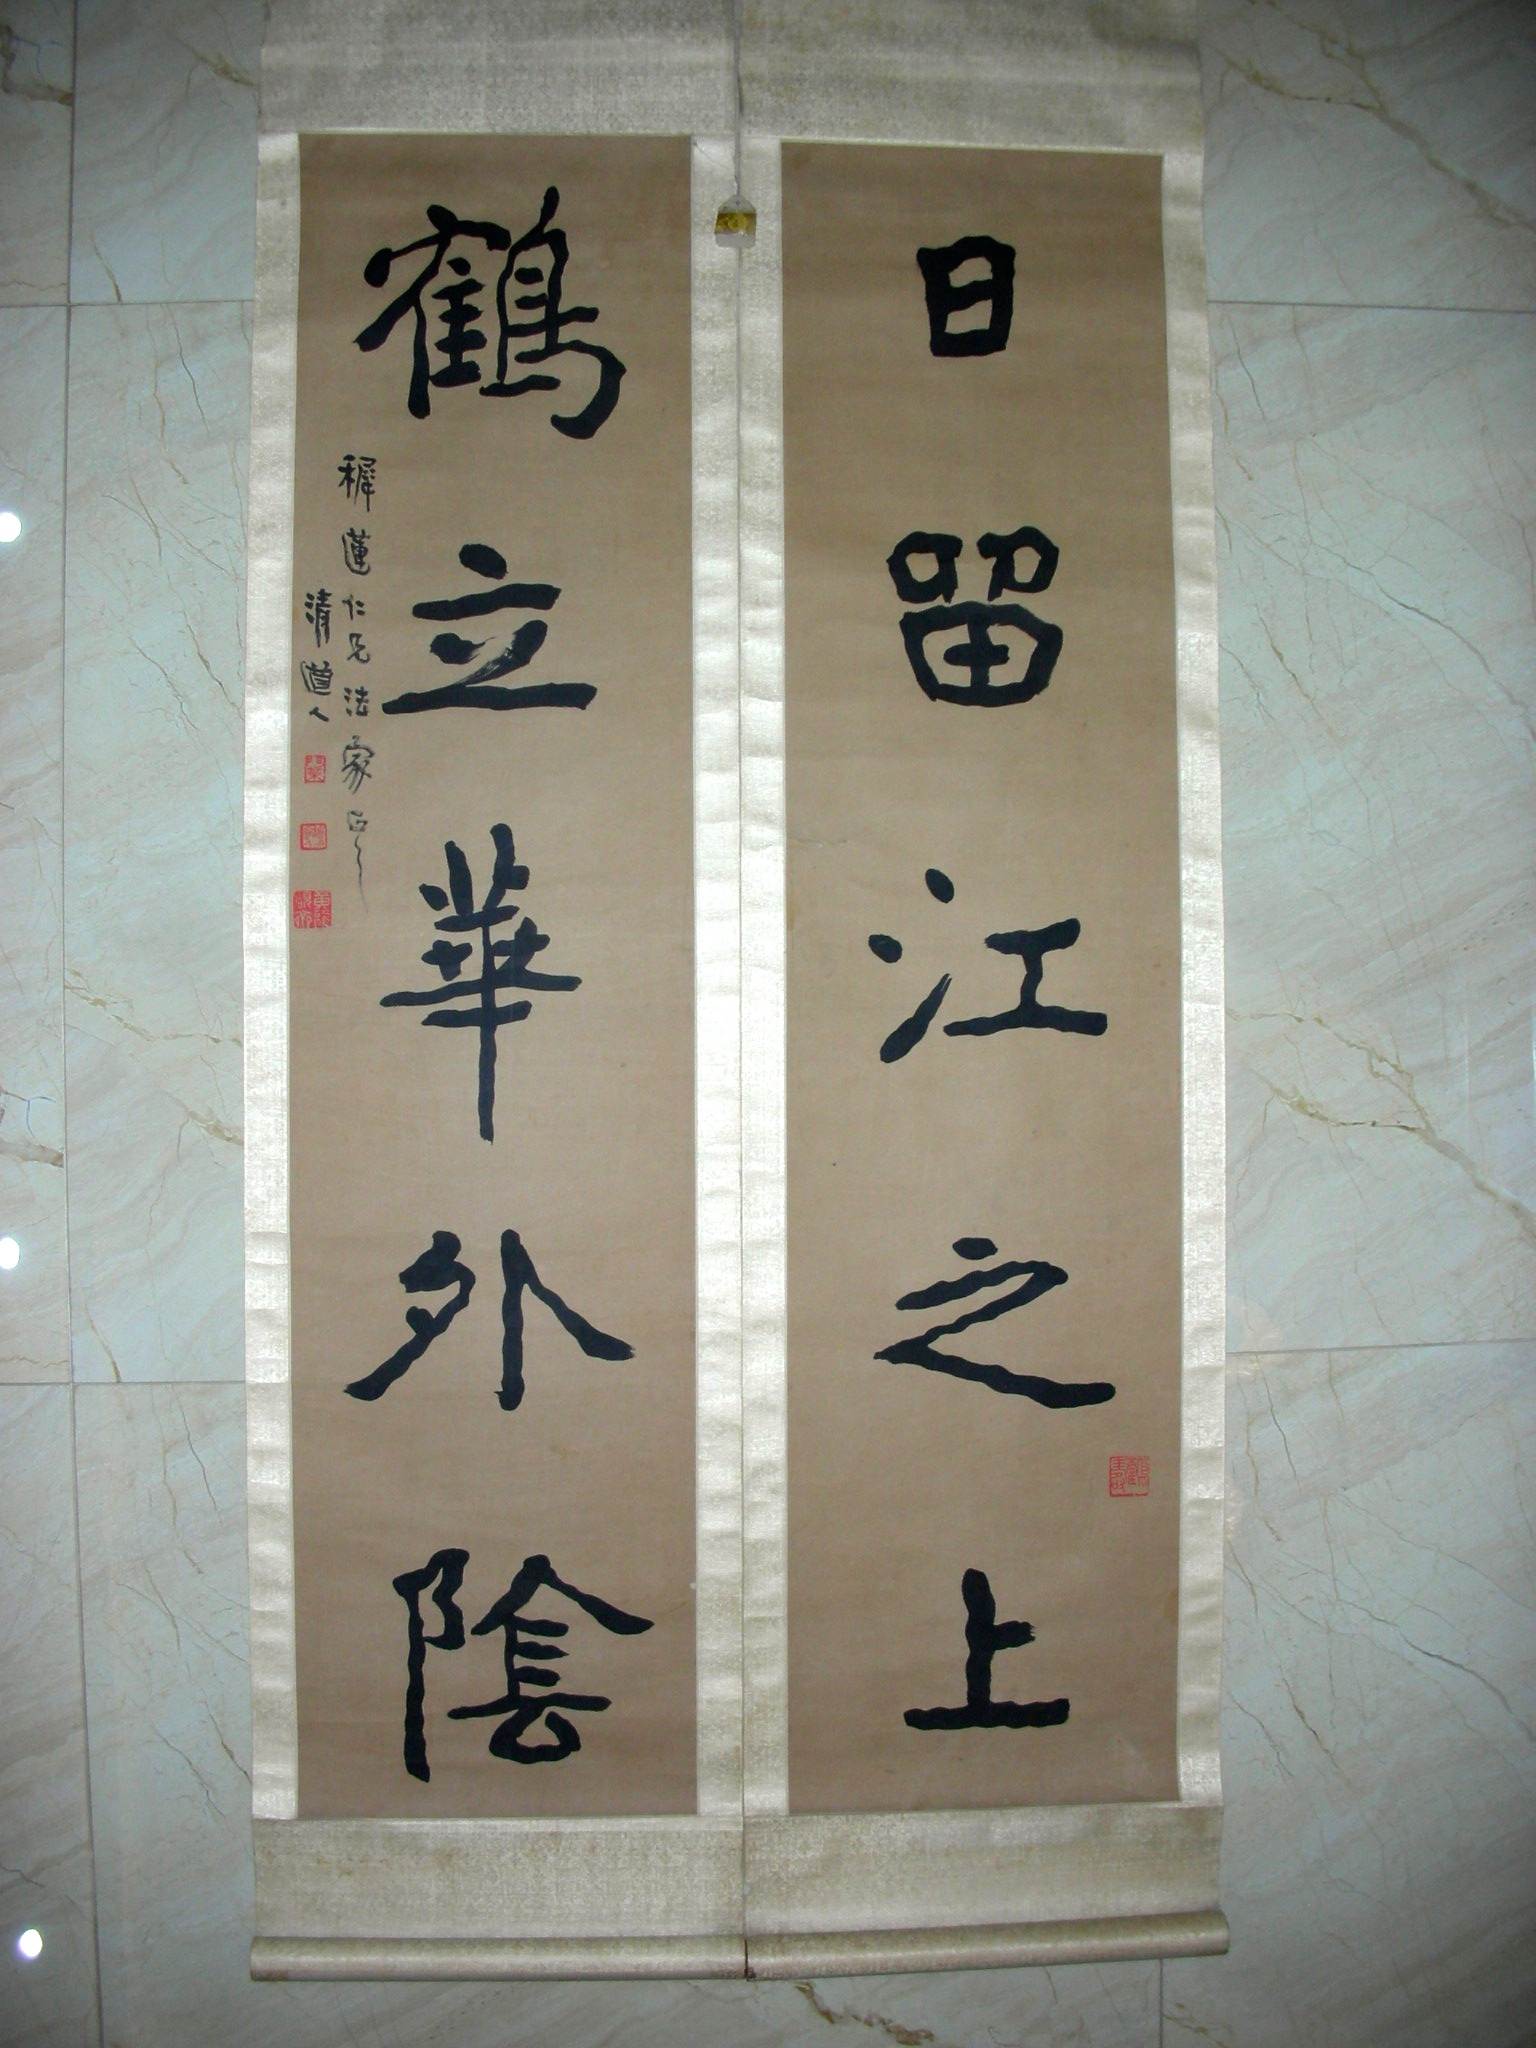 日留江之上
鶴立華外陰
穉蓮仁兄法家正之
清道人